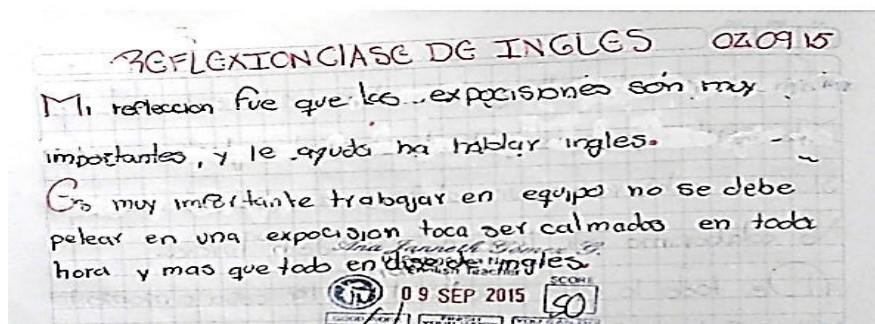 REFLEXION CLASE DE INGLES 020915
Mi refleccion fue que las expocisiones son muy
importantes, y le ayuda ha hablar ingles.
Es muy importante trabajar en equipo no se debe
pelear en una expocision toca ser calmados en toda
hora y mas que todo en ingles.
Ana Janneth Gómez
English Teacher
09 SEP 2015
SCORE
50